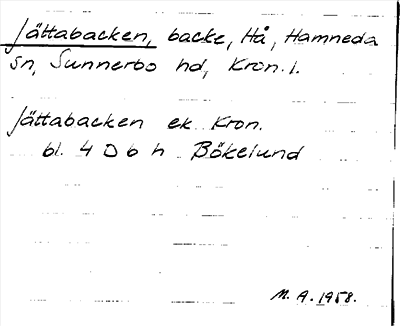 Jättabacken, backe, Hå, Hamneda
sn, Sunnerbo hd, Kron. l.
Jättabacken ek. Kron.
bl. 4 D b h Bökelund
M. A. 1958.